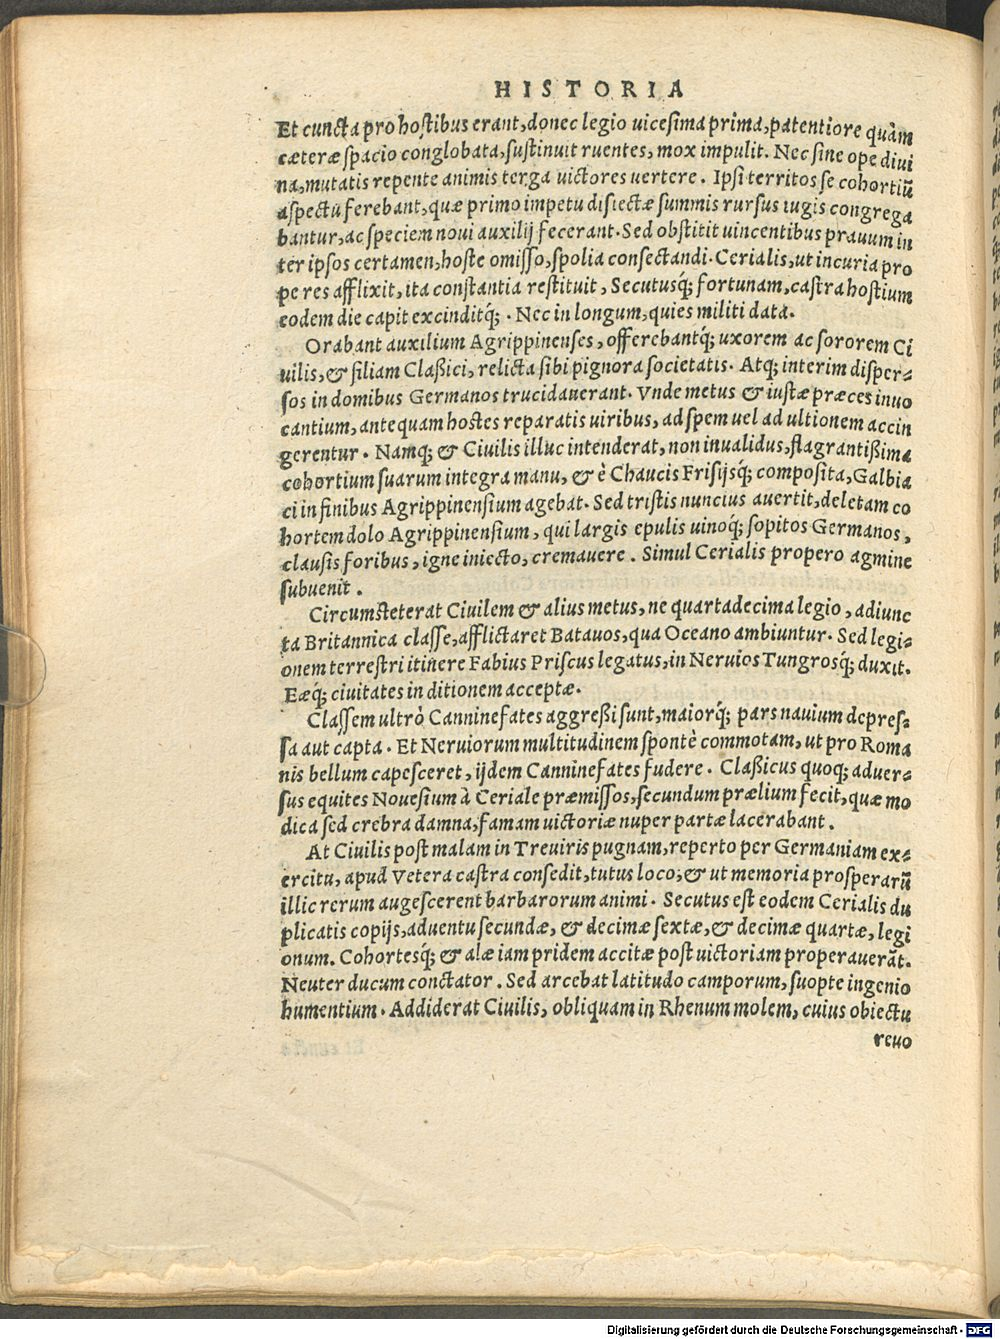 HISTORIA
Et cuncta pro hoſtibus erant, donec legio uiceſima prima, patentiore quàm
cæteræ ſpacio conglobata, ſuſtinuit ruentes, mox impulit. Nec ſine ope diui
na, mutatis repente animis terga uictores uertere. Ipſi territos ſe cohortiū
aſpectu ferebant, quæ primo impetu diſiectæ ſummis rurſus iugis congrega
bantur, ac ſpeciem noui auxilij fecerant. Sed obſtitit uincentibus prauum in
ter ipſos certamen, hoſte omiſſo, ſpolia conſectandi. Cerialis, ut incuria pro
pe res afflixit, ita conſtantia reſtituit, Secutusq́; fortunam, caſtra hoſtium
eodem die capit excinditq́; . Nec in longum, quies militi data.
Orabant auxilium Agrippinenſes, offerebantq́; uxorem ac ſororem Ci
uilis, & filiam Claßici, relicta ſibi pignora ſocietatis. Atq; interim diſper-
ſos in domibus Germanos trucidauerant. Vnde metus & iuſtæ præces inuo
cantium, antequam hoſtes reparatis uiribus, ad ſpem uel ad ultionem accin
gerentur. Namq; & Ciuilis illuc intenderat, non inualidus, flagrantißima
cohortium ſuarum integra manu, & è Chaucis Friſijsq́; compoſita, Galbia
ci in finibus Agrippinenſium agebat. Sed triſtis nuncius auertit, deletam co
hortem dolo Agrippinenſium, qui largis epulis uinoq́; ſopitos Germanos,
clauſis foribus, igne iniecto, cremauere. Simul Cerialis propero agmine
ſubuenit.
Circumſteterat Ciuilem & alius metus, ne quartadecima legio, adiunc
ta Britannica claſſe, afflictaret Batauos, qua Oceano ambiuntur. Sed legi-
onem terreſtri itinere Fabius Priſcus legatus, in Neruios Tungrosq́; duxit.
Eæq́; ciuitates in ditionem acceptæ.
Claſſem ultrò Canninefates aggreßi ſunt, maiorq́; pars nauium depreſ-
ſa aut capta. Et Neruiorum multitudinem ſpontè commotam, ut pro Roma
nis bellum capeſceret, ijdem Canninefates fudere. Claßicus quoq; aduer-
ſus equites Noueſium à Ceriale præmiſſos, ſecundum prælium fecit, quæ mo
dica ſed crebra damna, famam uictoriæ nuper partæ lacerabant.
At Ciuilis poſt malam in Treuiris pugnam, reperto per Germaniam ex-
ercitu, apud Vetera caſtra conſedit, tutus loco, & ut memoria proſperarū
illic rerum augeſcerent barbarorum animi. Secutus eſt eodem Cerialis du
plicatis copijs, aduentu ſecundæ, & decimæ ſextæ, & decimæ quartæ, legi
onum. Cohortesq́; & alæ iam pridem accitæ poſt uictoriam properauerāt.
Neuter ducum conctator. Sed arcebat latitudo camporum, ſuopte ingenio
humentium. Addiderat Ciuilis, obliquam in Rhenum molem, cuius obiectu
reuo
Digitalisierung gefördert durch die Deutsche Forschungsgemeinschaft - DFG